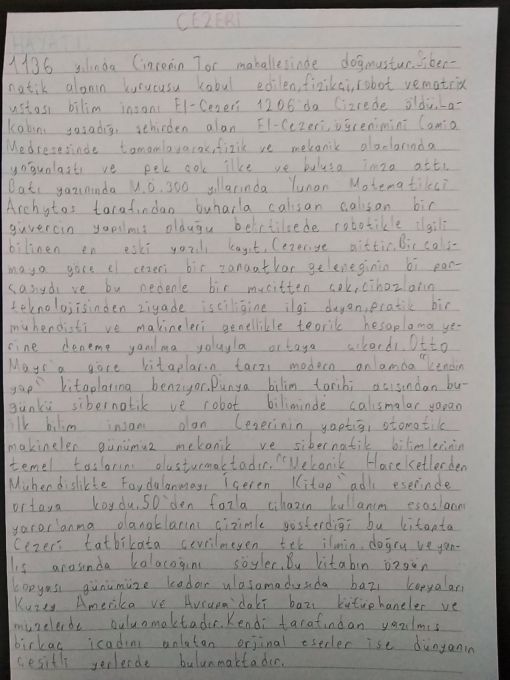 CEZERİ
HAYATI:
1136 yılında Cizrenin Tor mahallesinde doğmuştur.Siber-
natik alanın kurucusu kabul edilen,fizikçi,robot ve matrix
ustası bilim insanı El-Cezeri 1206'da Cizrede öldü.La-
kabını yaşadığı şehirden alan El-Cezeri,öğrenimini Camia
Medresesinde tamamlayarak,fizik ve mekanik alanlarında
yoğunlaştı ve pek çok ilke ve buluşa imza attı.
Batı yazınında M.Ö.300 yıllarında Yunan Matematikçi
Archytas tarafından buharla çalışan çalışan bir
güvercin yapılmış olduğu belirtilsede robotikle ilgili
bilinen en eski yazılı kayıt,Cezeriye aittir.Bir çalış-
maya göre el cezeri bir zanaatkar geleneğinin bi par-
çasıydı ve bu nedenle bir mucitten çok,cihazların
teknolojisinden ziyade işçiliğine ilgi duyan,pratik bir
mühendisti ve makineleri genellikle teorik hesaplama ye-
rine deneme yanılma yoluyla ortaya çıkardı.Otto
Mayr'a göre kitapların tarzı modern anlamda "kendin
yap" kitaplarına benziyor.Dünya bilim tarihi açısından bu-
günkü sibernatik ve robot biliminde çalışmalar yapan
ilk bilim insanı olan Cezerinin yaptığı otomatik
makineler günümüz mekanik ve sibernatik bilimlerinin
temel taşlarını oluşturmaktadır."Mekanik Hareketlerden
Mühendislikte Faydalanmayı İçeren Kitap" adlı eserinde
ortaya koydu.50'den fazla cihazın kullanım esaslarını
yararlanma olanaklarını çizimle gösterdiği bu kitapta
Cezeri tatbikata çevrilmeyen tek ilmin,doğru ve yan-
lış arasında kalacağını söyler.Bu kitabın özgün
kopyası günümüze kadar ulaşamadıysada bazı kopyaları
Kuzey Amerika ve Avrupa'daki bazı kütüphaneler ve
müzelerde bulunmaktadır.Kendi tarafından yazılmış
birkaç icadını anlatan orjinal eserler ise dünyanın
çeşitli yerlerde bulunmaktadır.